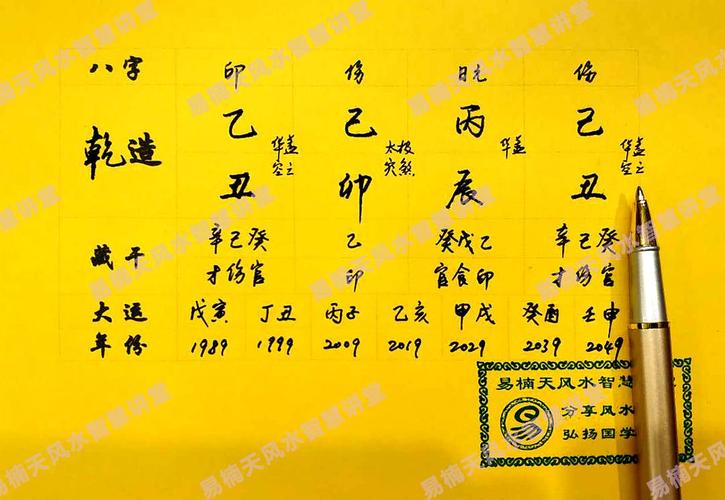 八字 印 伤 日元 伤
乾造 乙 己 丙 己
华盖 空亡 太极 灾煞 华盖 华盖 空亡
丑 卯 辰 丑
藏干 辛己癸 乙 癸戊乙 辛己癸
才伤官 印 官食印 才伤官
大运 戊寅 丁丑 丙子 乙亥 甲戌 癸酉 壬申
年份 1989 1999 2009 2019 2029 2039 2049
易楠天风水智慧
分享风水
弘扬国学
易楠天风水智慧讲堂